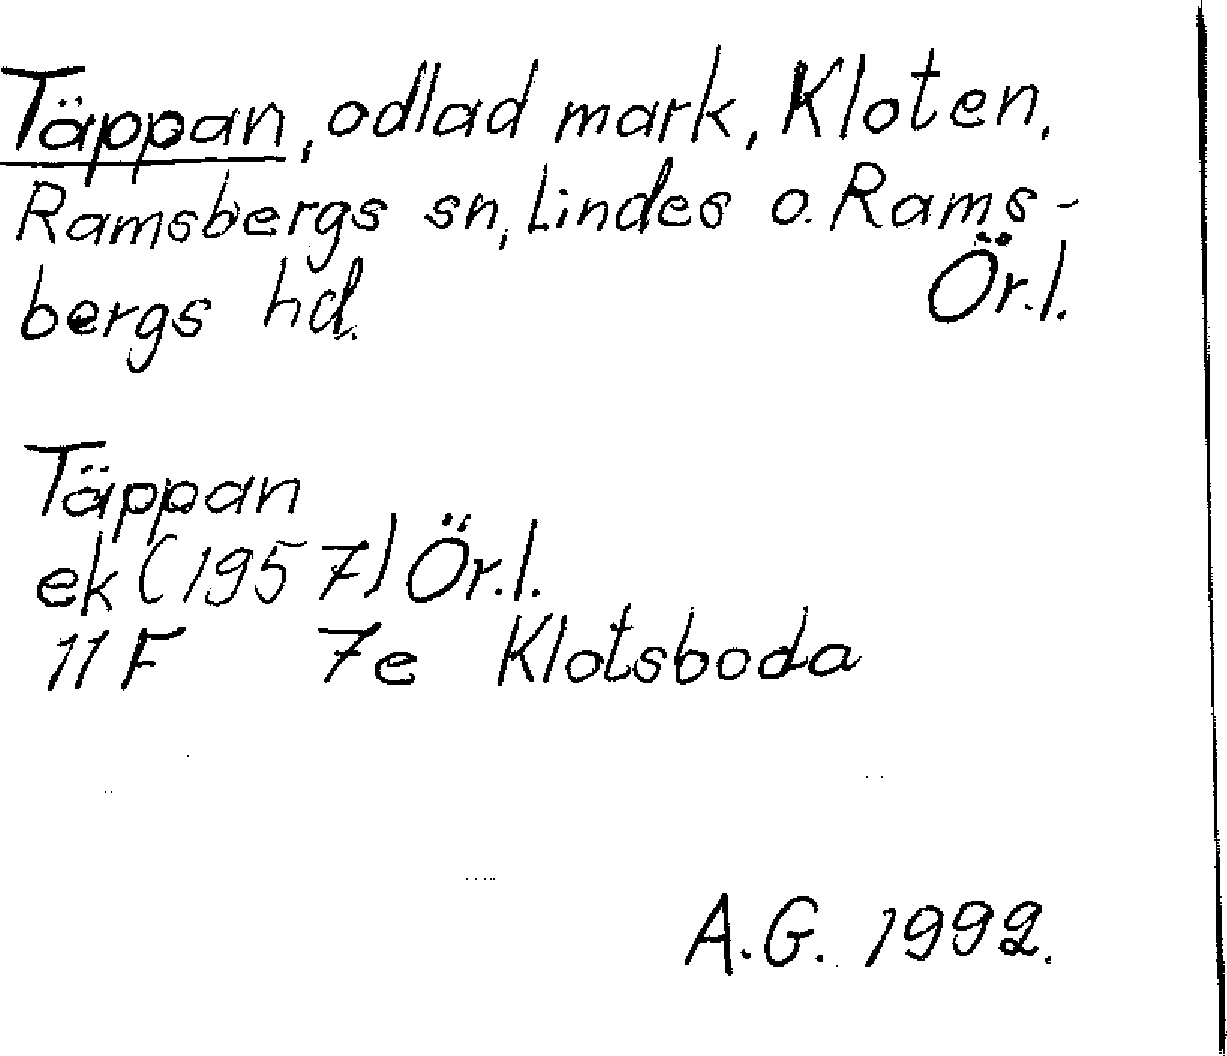 Täppan, odlad mark, Kloten,
Ramsbergs sn, Lindes o. Rams-
bergs hd. Ör.l.
Täppan
ek (1957) Ör.l.
11 F 7e Klotsboda
A.G. 1992.